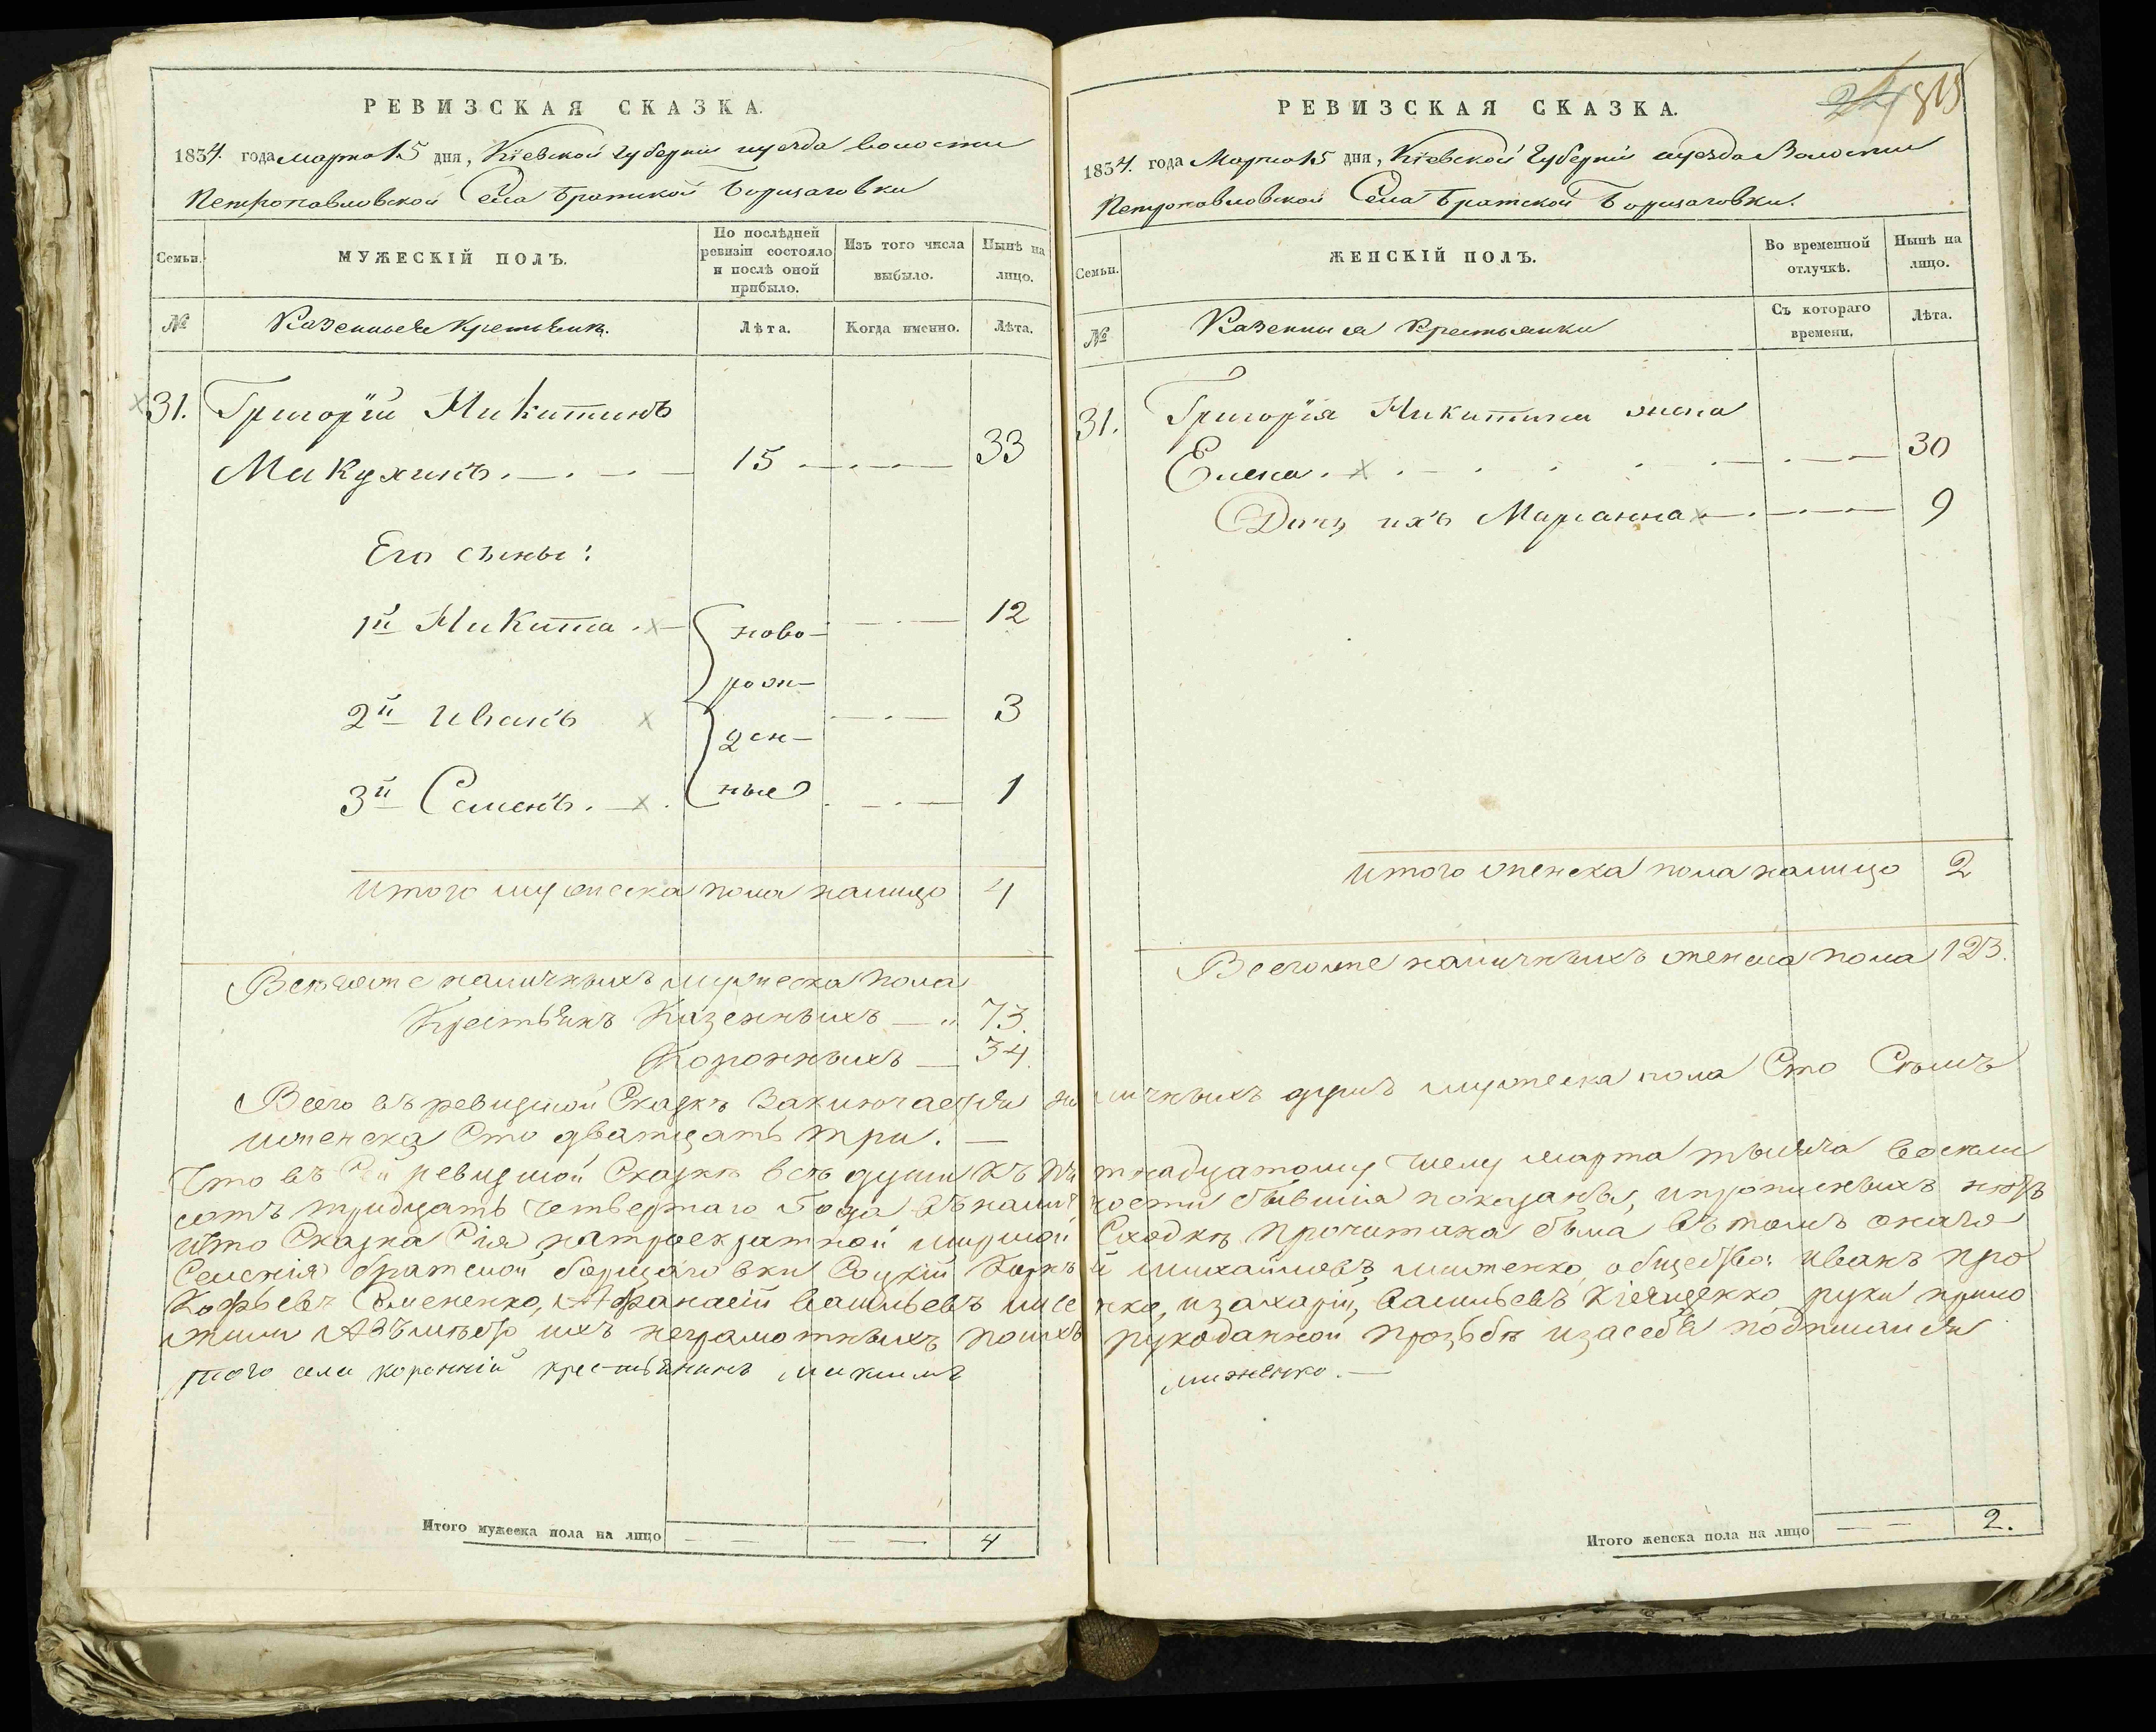 РЕВИЗСКАЯ СКАЗКА.
1834. года марта 15 дня, Кіевской губерніи и уезда волости
Петропавловской Села Братской Борщаговки
Семьи. МУЖЕСКІЙ ПОЛЪ. По послѣдней ревизіи состояло и послѣ оной прибыло. Изъ того числа выбыло. Нынѣ на лицо.
№ Казенныхъ Крестьянъ. Лѣта. Когда именно. Лѣта.
31. Григорій Никитинъ
Микухинъ. 15 33
Его сыны:
1й Никита. ново- 12
рож-
2й Иванъ 3
ден-
3й Семенъ. ные 1
Итого мужеска пола налицо 4
Всѣхъ же наличныхъ мужеска пола
Крестьянъ Казенныхъ — 73.
Коронныхъ — 34.
РЕВИЗСКАЯ СКАЗКА.
24 815
1834. года Марта 15 дня, Кіевской Губерніи и уезда Волости
Петропавловской Села Братской Борщаговки.
Семьи. ЖЕНСКІЙ ПОЛЪ. Во временной отлучкѣ. Нынѣ на лицо.
№ Казенныя Крестьянки Съ котораго времени. Лѣта.
31. Григорія Никитина жена
Елена. 30
Дочь ихъ Марианна 9
Итого женска пола налицо 2
Всего же наличныхъ женска пола 123.
Всего въ ревизской Сказкѣ заключается наличныхъ душъ мужеска пола Сто Семъ
и женска Сто дватцать три. —
Что въ Сей ревизской Сказкѣ всѣ души къ пятнадцатому числу марта тысяча восем
сотъ тридцать четвертаго года въ наличности бывшія показаны, и прописныхъ нетъ
и что Сказка Сія на троекратной мирской Сходкѣ прочитана была въ томъ онаго
Селенія братской борщаговки Соцкій Корнѣй михайловъ миженко, общество: иванъ про
кофьевъ Семененко, Афанасій васильевъ и захарій, васильевъ руки прило
жили А вѣместо ихъ неграмотныхъ по ихъ рукоданной прозьбѣ и за себя подписался
того села коронній крестьянинъ миженко. —
Итого мужеска пола на лицо — — — — 4
Итого женска пола на лицо — — 2.